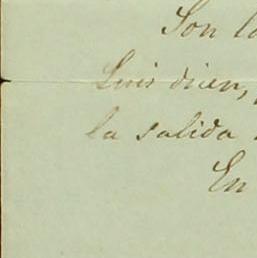 Son lo
Luis dicen,
la salida
En